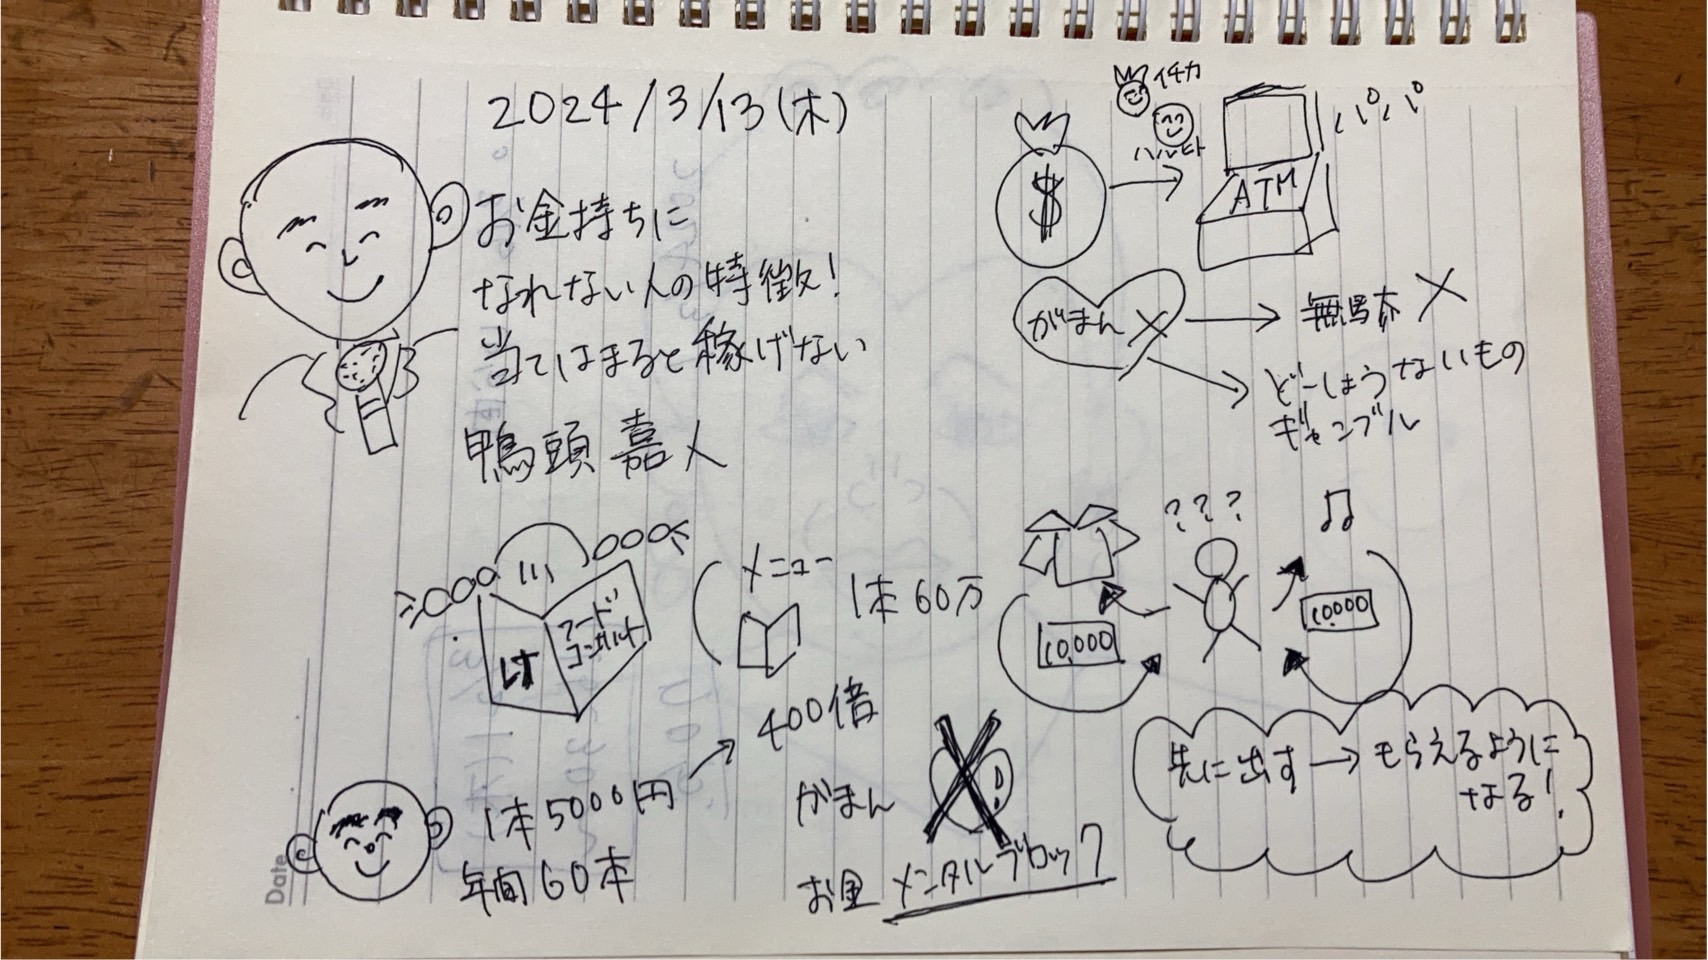 2024/3/13(木)
お金持ちに
なれない人の特徴!
当てはまると稼げない
鴨頭 嘉人
イチカ
ハルヒト
パパ
$
ATM
がまん ×
無駄 ×
どーしようないもの
ギャンブル
フード
メニュー
1本 60万
400倍
1本 5000円
年間 60本
がまん
お金 メンタルブロック
???
10,000
10,000
先に出す → もらえるように
なる!
Date